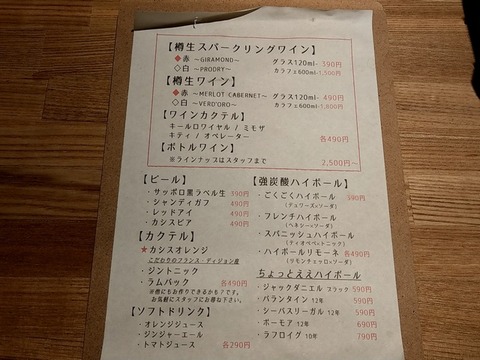 【樽生スパークリングワイン】
◆赤 〜GIRAMONDO〜 グラス120ml- 390円
◇白 〜PRODRY〜 カラフェ600ml-1,500円
【樽生ワイン】
◆赤 〜MERLOT CABERNET〜 グラス120ml- 490円
◇白 〜VERD'ORO〜 カラフェ600ml-1,800円
【ワインカクテル】
キールロワイヤル / ミモザ
キティ / オペレーター 各490円
【ボトルワイン】
※ラインナップはスタッフまで 2,500円〜
【ビール】
・サッポロ黒ラベル生 390円
・シャンディガフ 490円
・レッドアイ 490円
・カシスビア 490円
【カクテル】
★カシスオレンジ
こだわりのフランス・ディジョン産
・ジントニック
・ラムバック 各490円
※他にもお作りできるかも?です。
お気軽にスタッフにお尋ね下さい。
【ソフトドリンク】
・オレンジジュース
・ジンジャーエール
・トマトジュース 各290円
【強炭酸ハイボール】
・ごくごくハイボール 390円
(デュワーズ×ソーダ)
・フレンチハイボール
(ヘネシー×ソーダ)
・スパニッシュハイボール
(ティオペペ×トニック)
・ハイボールリモーネ 各490円
(リモンチェッロ×ソーダ)
ちょっとええハイボール
・ジャックダニエル ブラック 590円
・バランタイン 12年 590円
・シーバスリーガル 12年 590円
・ボーモア 12年 690円
・ラフロイグ 10年 790円